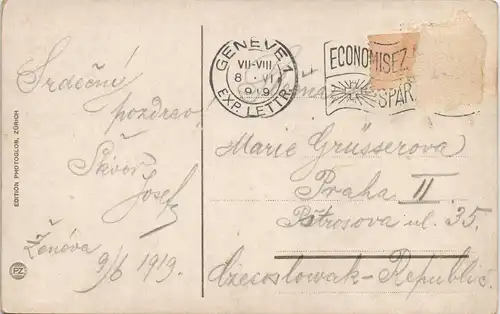 GENÈVE 1
VII-VIII
8 · VI
1919
EXP. LETTR.
ECONOMISEZ
SPAR
Srdečný
pozdrav
Škvor
Josef
Ženéva
9/6 1919.
Marie Grüsserova
Praha II
Petrosova ul. 35.
Czecoslowak-Republic.
EDITION PHOTOGLOB, ZÜRICH
PZ